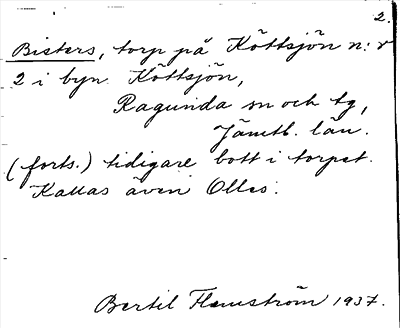 2.
Bisters, torp på Köttsjön n:r
2 i byn Köttsjön,
Ragunda sn och tg,
Jämtl. län.
(forts.) tidigare bott i torpet.
Kallas även Olles.
Bertil Flemström 1937.